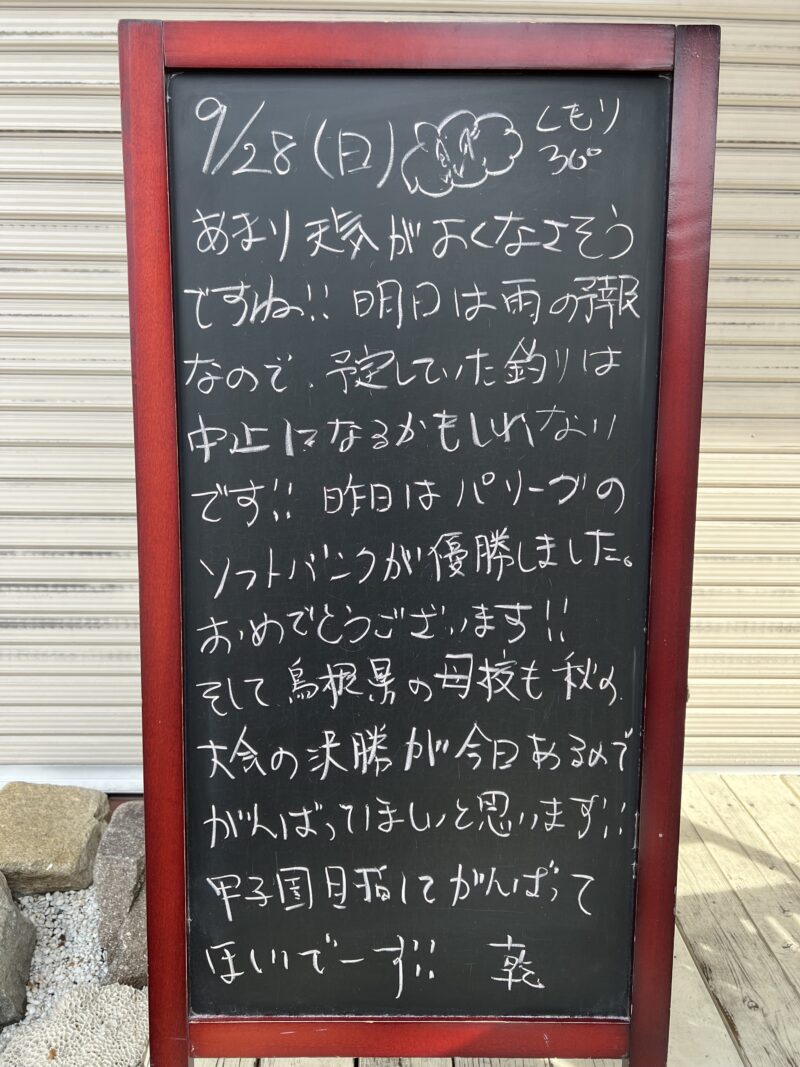 9/28(日) くもり 30°
あまり天気がよくなさそう
ですね!! 明日は雨の予報
なので、予定していた釣りは
中止になるかもしれない
です!! 昨日はパリーグの
ソフトバンクが優勝しました。
おめでとうございます!!
そして島根県の母校も秋の
大会の決勝が今日あるので
がんばってほしいと思います!!
甲子園目指してがんばって
ほしいでーす!! 乾